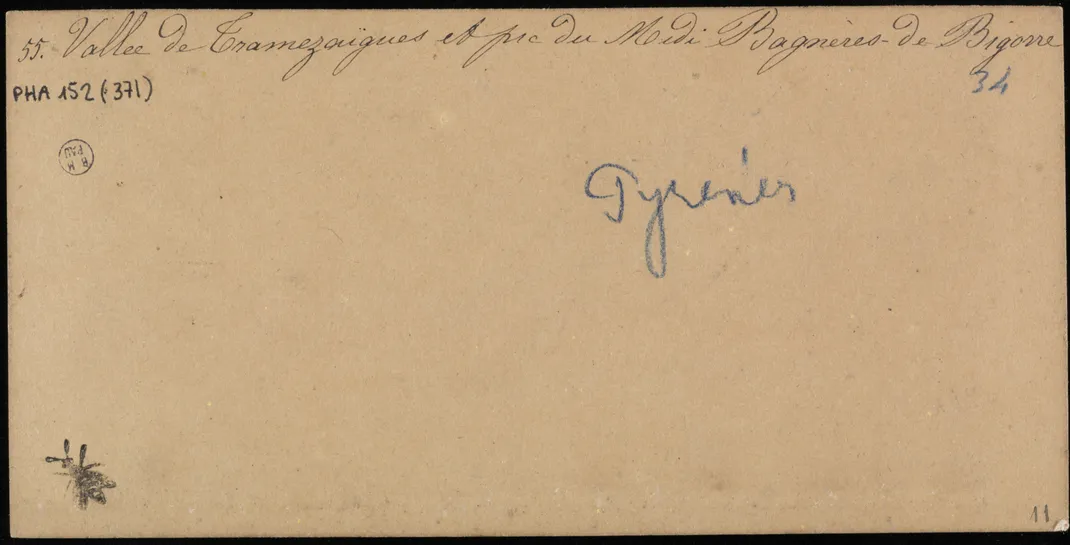 55. Vallée de Tramezaïgues et pic du Midi Bagnères-de Bigorre
34
PHA 152 (371)
B M
PAU
Pyrénées
11